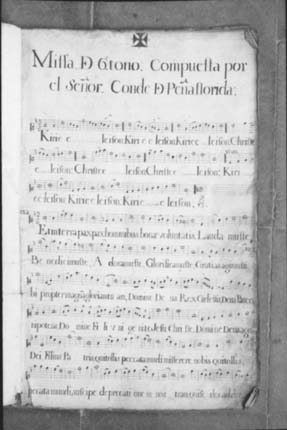 Missa D 6.tono. Compuesta por
el Señor. Conde D Peñaflorida;
Kirie e leison: Kiri e e leison: Kirie e leison: Christe
e leison: Christe e leison: Christe e leison: Kiri
e e leison: Kirie e leison: Kirie e leison,
Et in terra pax pax hominibus bonæ voluntatis, Lauda muste
Be nedicimuste, A doramuste, Glorificamuste, Gratias agimus ti
bi propter magnã gloriam tu am, Domine De us Rex Cælestis, Deus Pater
nipotens, Do mine fi li u ni ge nite Jesu Christe, Domine Deus Ag
Dei, Filius Pa tris, qui tollis peccata mundi, miserere nobis, qui tollis
peccata mundi, suscipe deprecati one m nos tram, qui se des ad dex